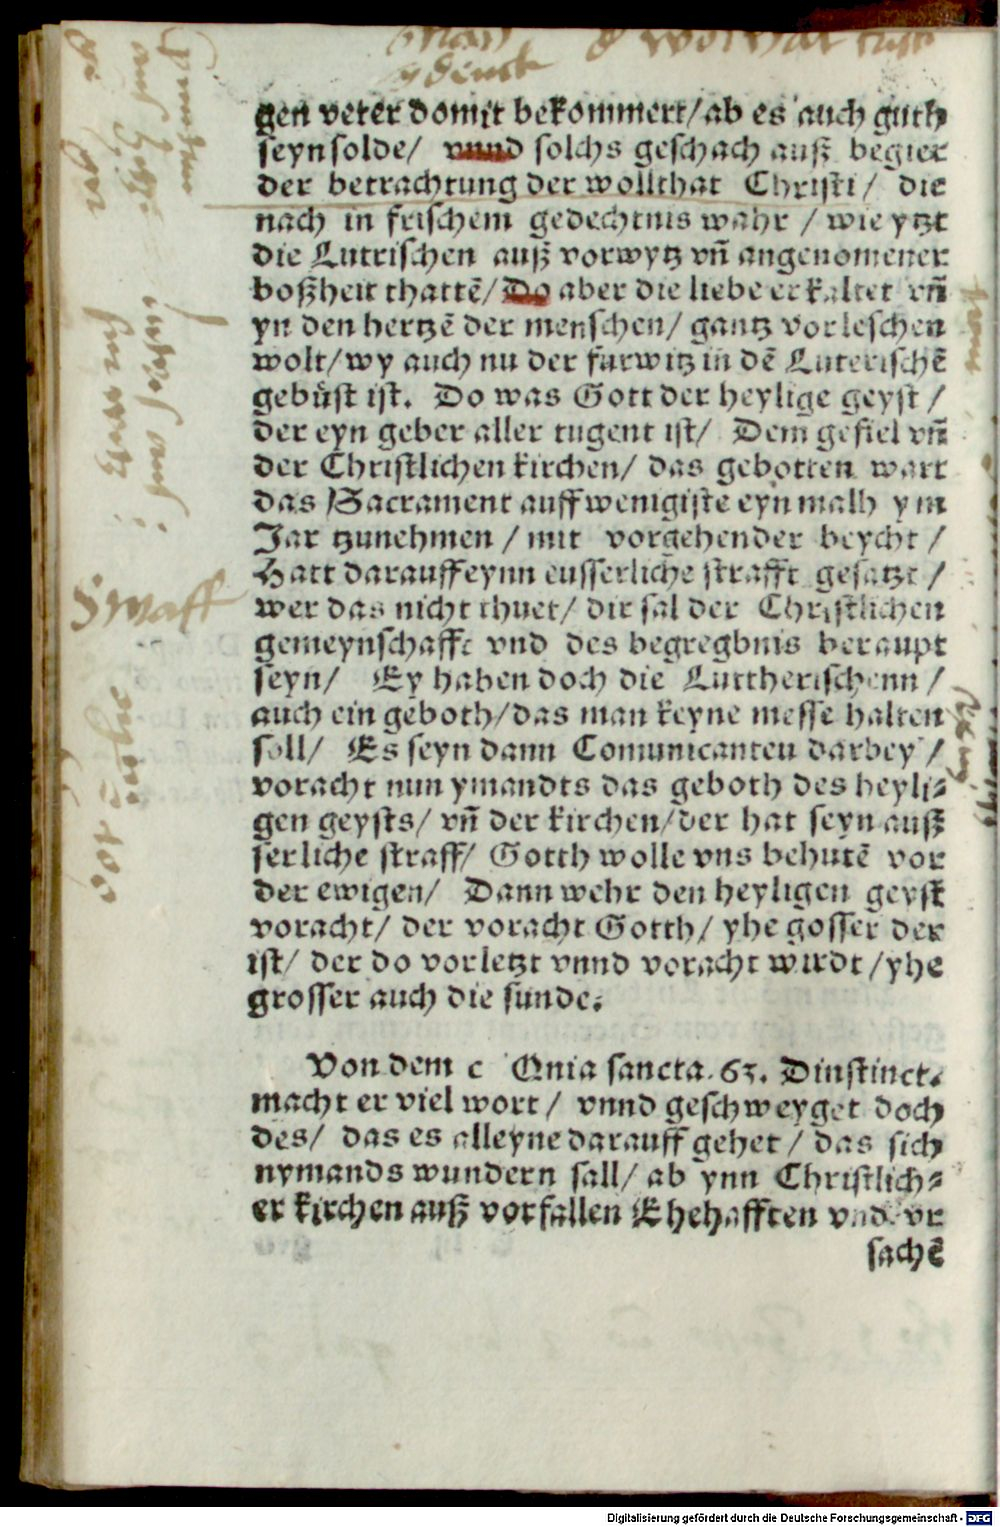 gen veter domit bekommert/ab es auch guth
seyn solde/ vnnd solchs geschach auß begier
der betrachtung der wollthat Christi/ die
nach in frischem gedechtnis wahr / wie ytzt
die Lutrischen auß vorwytz vn̄ angenomener
boßheit thattē/ Do aber die liebe erkaltet vn̄
yn den hertzē der menschen/ gantz vorleschen
wolt/wy auch nu der furwitz in dē Luterischē
gebüst ist. Do was Gott der heylige geyst /
der eyn geber aller tugent ist/ Dem gefiel vn̄
der Christlichen kirchen/ das gebotten wart
das Sacrament auff wenigiste eyn malh ym
Jar tzunehmen / mit vorgehender beycht /
Hatt darauff eynn eusserliche strafft gesatzt /
wer das nicht thuet/ dir sal der Christlichen
gemeynschafft vnd des begregbnis beraupt
seyn/ Ey haben doch die Luttherischenn /
auch ein geboth/das man keyne messe halten
soll/ Es seyn dann Comunicanteu darbey /
voracht nun ymandts das geboth des heyli⸗
gen geysts/ vn̄ der kirchen/der hat seyn auß
serliche straff/ Gotth wolle vns behutē vor
der ewigen/ Dann wehr den heyligen geyst
voracht/ der voracht Gotth/ yhe gosser der
ist/ der do vorletzt vnnd voracht wirdt /yhe
grosser auch die sunde.
Von dem c Qnia sancta. 63. Dinstinct.
macht er viel wort/ vnnd geschweyget doch
des/ das es alleyne darauff gehet / das sich
nymands wundern sall/ ab ynn Christlich⸗
er kirchen auß vorfallen Ehehafften vnd vr
sachē
Digitalisierung gefördert durch die Deutsche Forschungsgemeinschaft - DFG